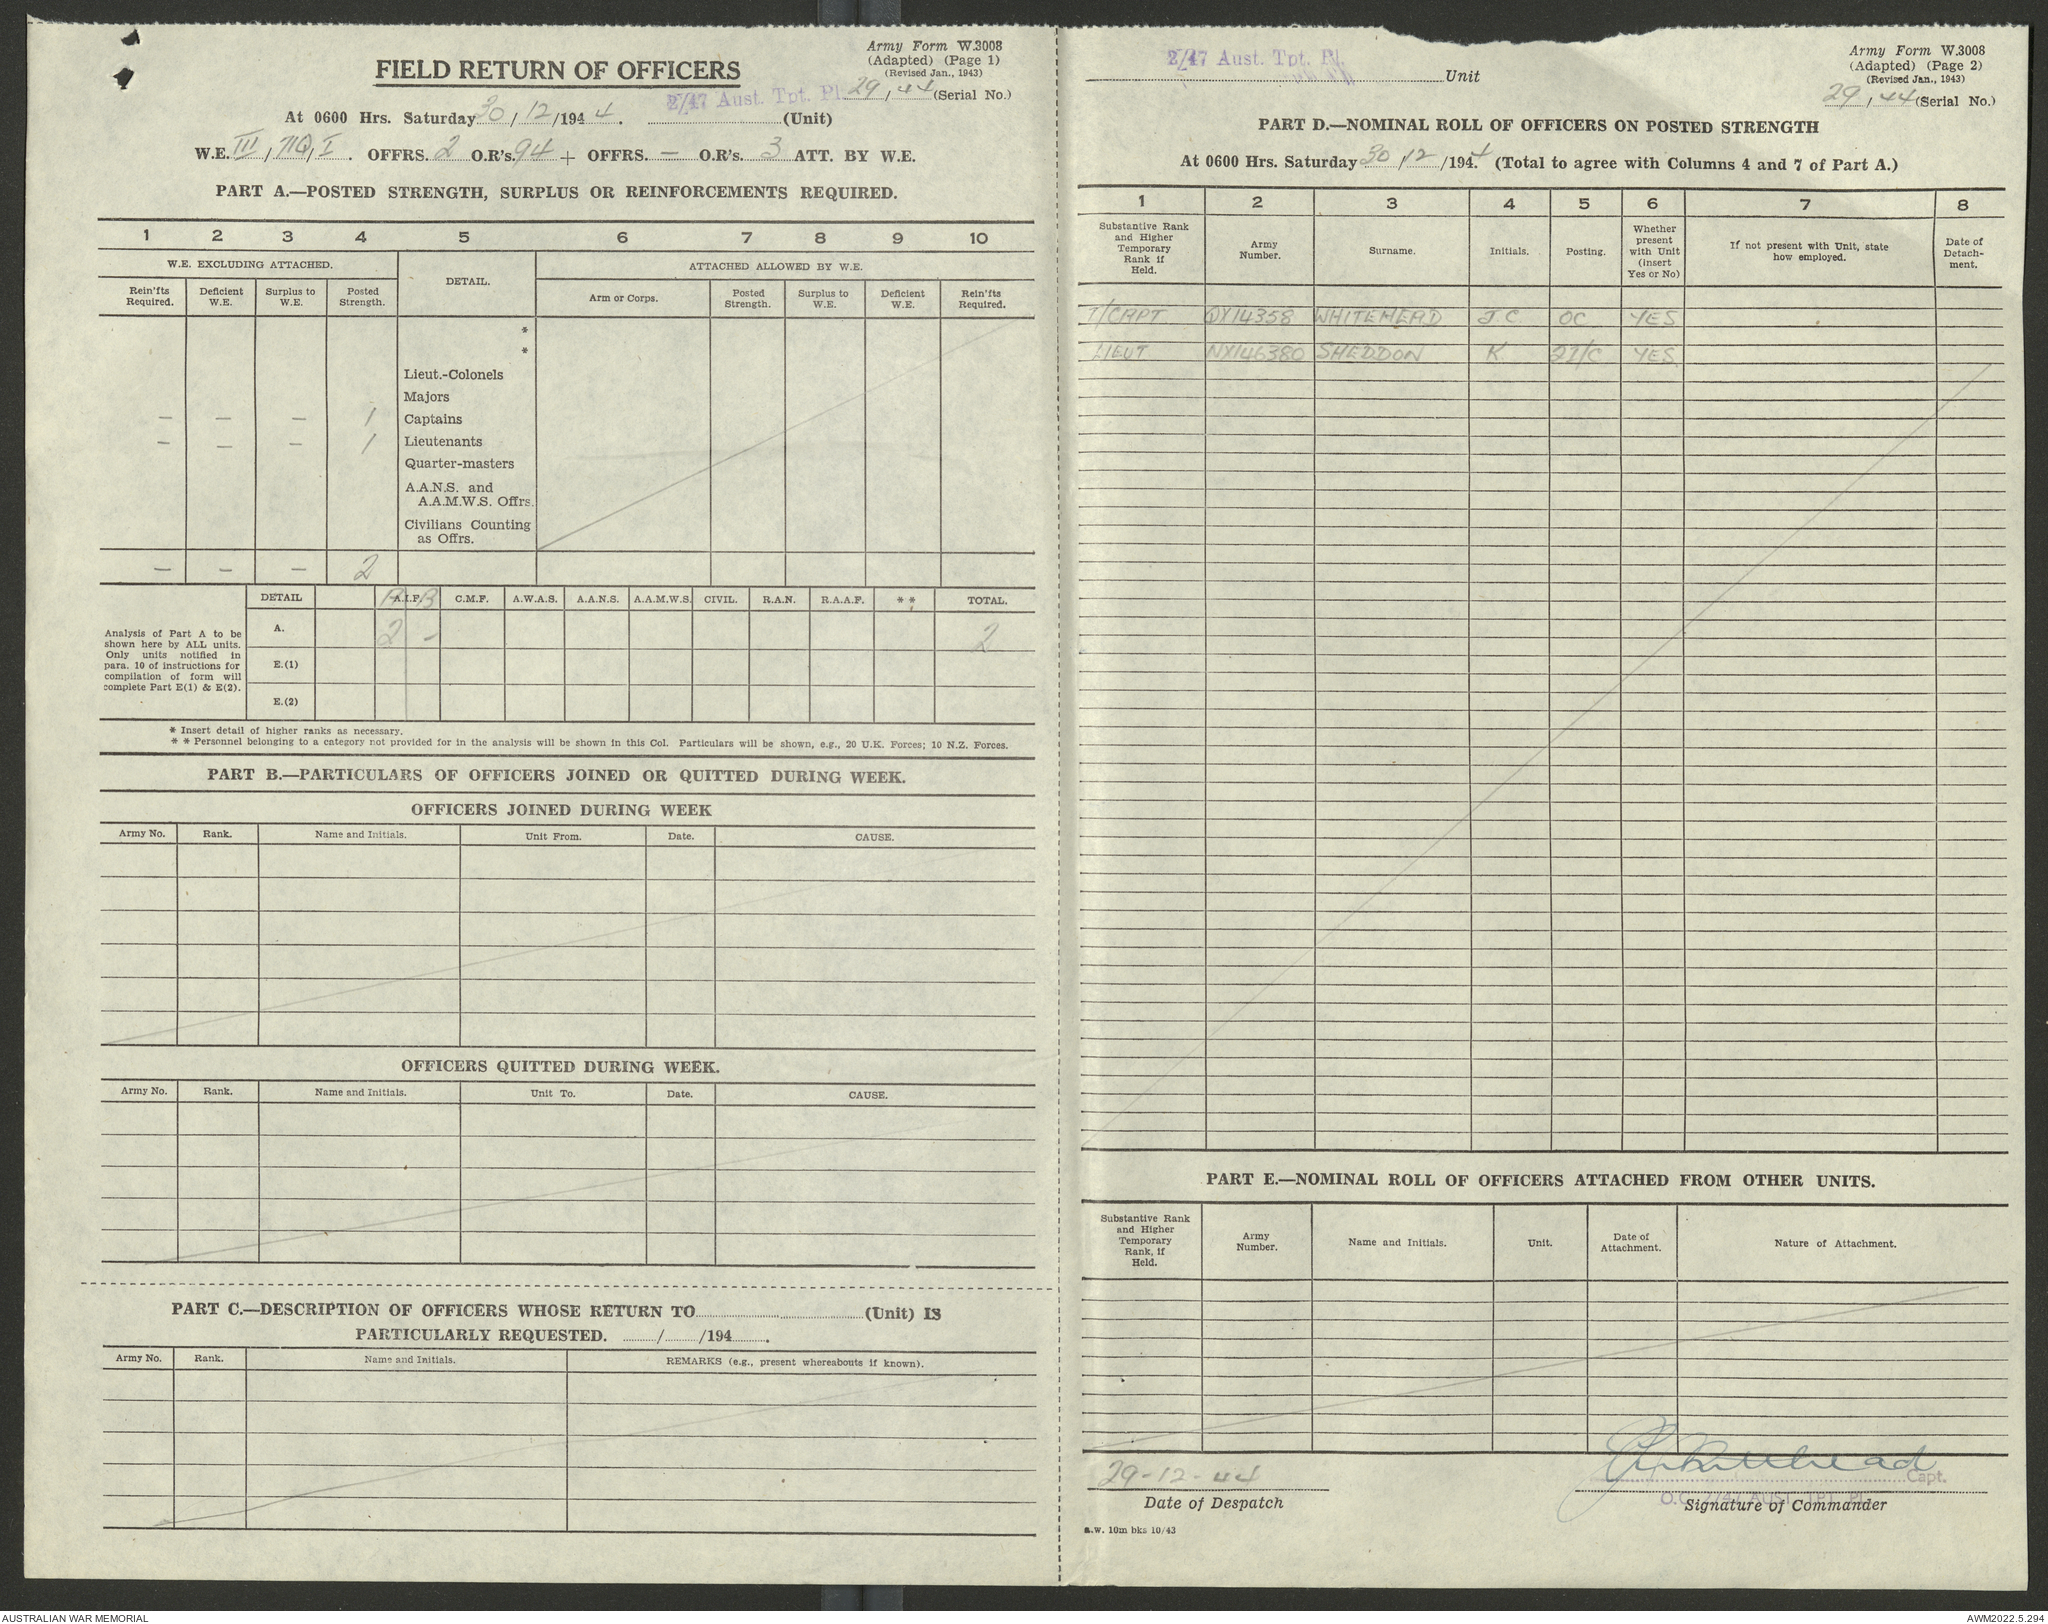 Army Form W.3008
(Adapted) (Page 1)
(Revised Jan., 1943)
FIELD RETURN OF OFFICERS
2/47 Aust. Tpt. Pl. 29, 44 (Serial No.)
At 0600 Hrs. Saturday 30/12/1944. (Unit)
W.E. III, I. OFFRS. 2 O.R's. 94 + OFFRS. — O.R's. 3 ATT. BY W.E.
PART A.—POSTED STRENGTH, SURPLUS OR REINFORCEMENTS REQUIRED.
1 2 3 4 5 6 7 8 9 10
W.E. EXCLUDING ATTACHED. DETAIL. ATTACHED ALLOWED BY W.E.
Rein'fts Required. Deficient W.E. Surplus to W.E. Posted Strength. Arm or Corps. Posted Strength. Surplus to W.E. Deficient W.E. Rein'fts Required.
*
*
Lieut.-Colonels
Majors
— — — 1 Captains
— — — 1 Lieutenants
Quarter-masters
A.A.N.S. and
A.A.M.W.S. Offrs.
Civilians Counting
as Offrs.
— — — 2
DETAIL A A.I.F. B C.M.F. A.W.A.S. A.A.N.S. A.A.M.W.S. CIVIL. R.A.N. R.A.A.F. ** TOTAL.
A. 2 — 2
E.(1)
E.(2)
Analysis of Part A to be
shown here by ALL units.
Only units notified in
para. 10 of instructions for
compilation of form will
complete Part E(1) & E(2).
* Insert detail of higher ranks as necessary.
* * Personnel belonging to a category not provided for in the analysis will be shown in this Col. Particulars will be shown, e.g., 20 U.K. Forces; 10 N.Z. Forces.
PART B.—PARTICULARS OF OFFICERS JOINED OR QUITTED DURING WEEK.
OFFICERS JOINED DURING WEEK
Army No. Rank. Name and Initials. Unit From. Date. CAUSE.
OFFICERS QUITTED DURING WEEK.
Army No. Rank. Name and Initials. Unit To. Date. CAUSE.
PART C.—DESCRIPTION OF OFFICERS WHOSE RETURN TO (Unit) IS
PARTICULARLY REQUESTED. / /194 .
Army No. Rank. Name and Initials. REMARKS (e.g., present whereabouts if known).
2/47 Aust. Tpt. Pl. Unit
Army Form W.3008
(Adapted) (Page 2)
(Revised Jan., 1943)
29, 44 (Serial No.)
PART D.—NOMINAL ROLL OF OFFICERS ON POSTED STRENGTH
At 0600 Hrs. Saturday 30/12/1944 (Total to agree with Columns 4 and 7 of Part A.)
1 2 3 4 5 6 7 8
Substantive Rank and Higher Temporary Rank if Held. Army Number. Surname. Initials. Posting. Whether present with Unit (insert Yes or No) If not present with Unit, state how employed. Date of Detach-ment.
T/CAPT QX14358 WHITEHEAD J.C. OC YES
LIEUT NX146380 SHEDDON K. 2I/C YES
PART E.—NOMINAL ROLL OF OFFICERS ATTACHED FROM OTHER UNITS.
Substantive Rank and Higher Temporary Rank, if Held. Army Number. Name and Initials. Unit. Date of Attachment. Nature of Attachment.
29-12-44
Date of Despatch
Whitehead Capt.
O.C. 2/47 AUST. TPT. PL.
Signature of Commander
a.w. 10m bks 10/43
AUSTRALIAN WAR MEMORIAL
AWM2022.5.294